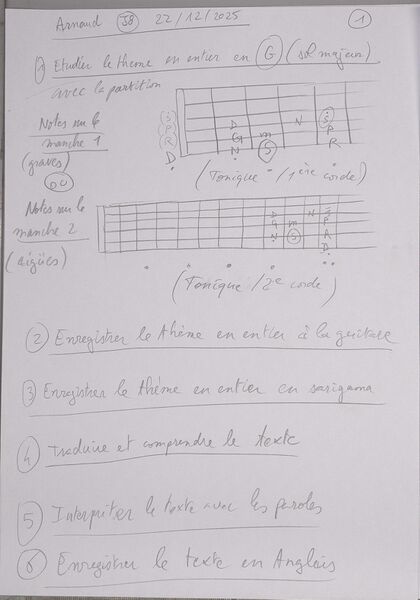 Arnaud J8 22/12/2025 1
1) Etudier le thème en entier en G (sol majeur)
avec la partition
Notes sur le manche 1
(graves)
OU
S P R D
D G N
m S
N
S P R
(Tonique /1ère corde)
Notes sur le manche 2
(aigües)
D G N
m S
N
S P R D
(Tonique /2e corde)
2 Enregistrer le thème en entier à la guitare
3 Enregistrer le thème en entier en sarigama
4 Traduire et comprendre le texte
5 Interpréter le texte avec les paroles
6 Enregistrer le texte en Anglais